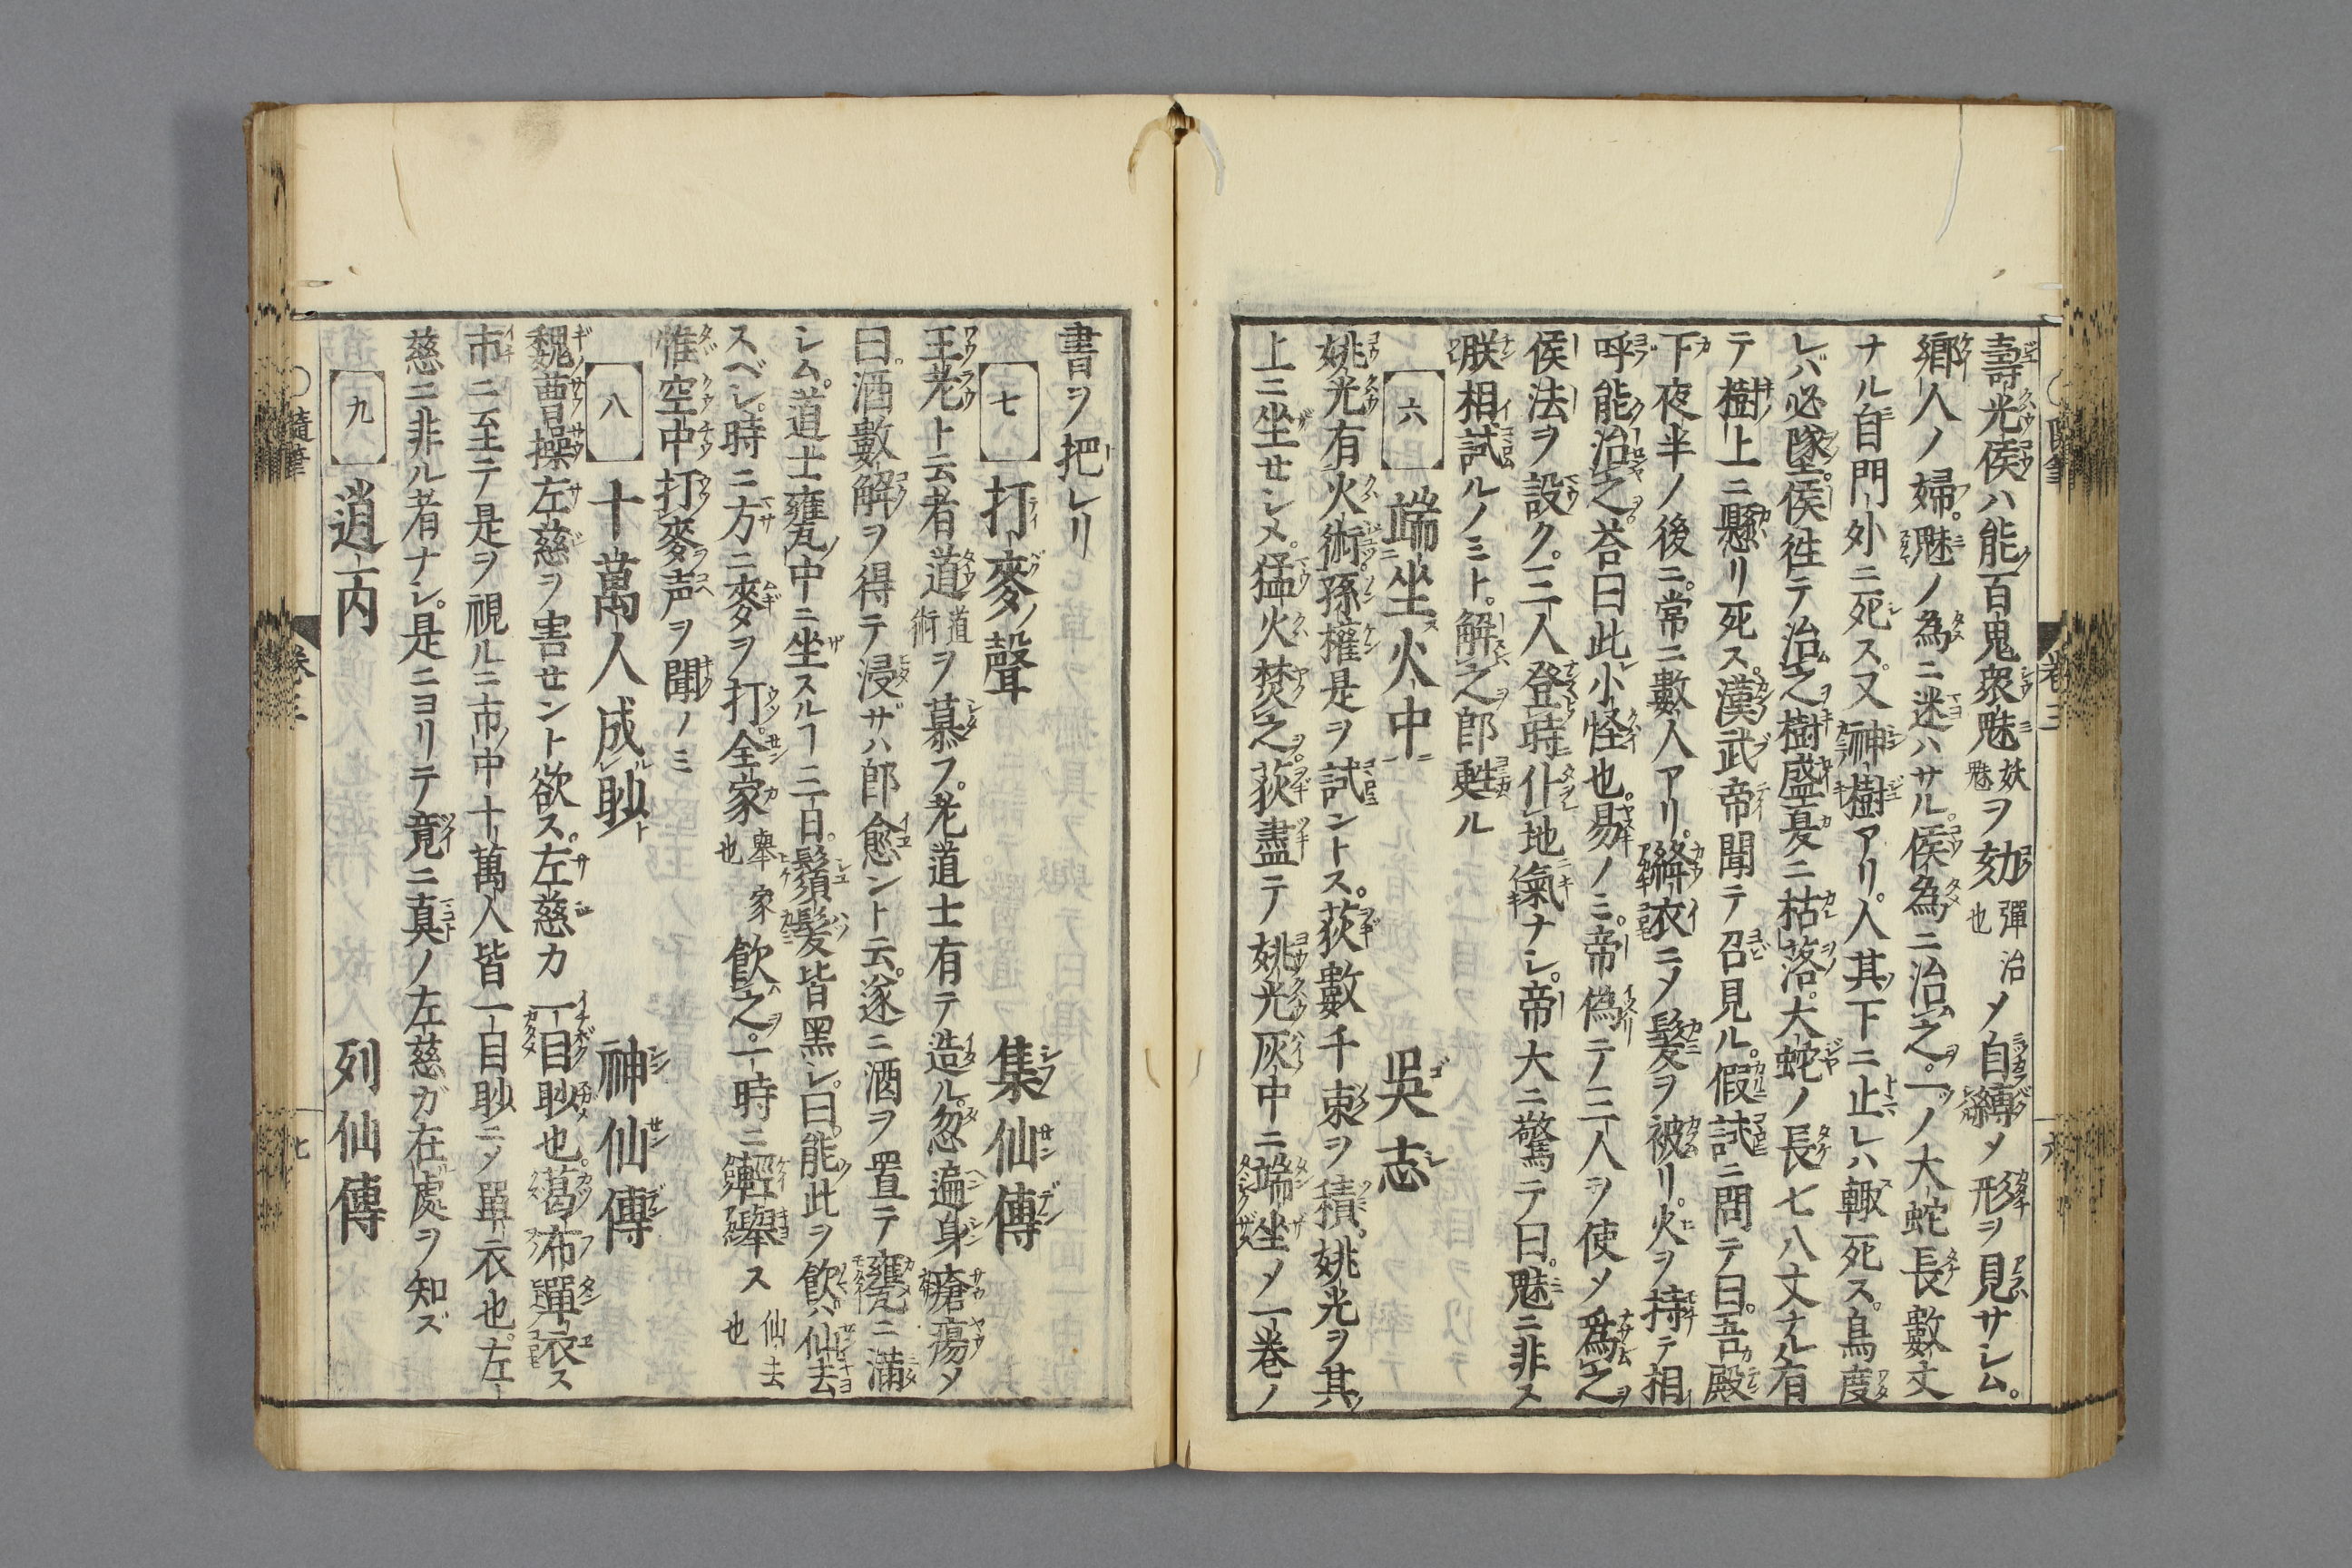 壽光侯ハ能百鬼衆魅妖魅ヲ劾彈治也メ自縛メ形ヲ見サシム。
鄉人ノ婦。魅ノ為ニ迷ハサル。侯為ニ治之。一ノ大蛇長數丈
ナル自門外ニ死ス。又神樹アリ。人其下ニ止レハ輙死ス。鳥度
レバ必墜。侯徃テ治之樹盛夏ニ枯落。大蛇ノ長七八丈ナル有
テ樹上ニ懸リ死ス。漢武帝聞テ召見ル。假試ニ問テ曰。吾殿
下夜半ノ後ニ。常ニ數人アリ。絳衣ニメ髮ヲ被リ。火ヲ持テ相
呼能治之荅曰此小怪也。易ノミ。帝偽テ三人ヲ使メ為之
侯法ヲ設ク。三人登時仆地氣ナシ。帝大ニ驚テ曰。魅ニ非ス
朕相試ルノミト。解之即甦ル
六 端坐火中 吳志
姚光有火術。孫權是ヲ試ントス。荻數千束ヲ積。姚光ヲ其
上ニ坐セシメ。猛火焚之。荻盡テ姚光灰中ニ端坐メ一巻ノ
書ヲ把レリ
七 打麥ノ聲 集仙傳
王老ト云者道道術ヲ慕フ。老道士有テ造ル。忽遍身瘡瘍メ
曰。酒數斛ヲ得テ浸ザハ即愈ント云。遂ニ酒ヲ置テ甕ニ滿
シム。道士甕中ニ坐スルヿ三日。鬚髮皆黑シ。曰。能此ヲ飲バ仙去
スベシ。時ニ方ニ麥ヲ打。全家舉家也飲之。一時ニ輕舉ス仙去也
惟空中打麥声ヲ聞ノミ
八 十萬人成眇 神仙傳
魏曹操左慈ヲ害セント欲ス。左慈カ一目眇也。葛布單衣ス
市ニ至テ是ヲ視ルニ市中十萬人皆一目眇ニメ單衣也。左
慈ニ非ル者ナシ。是ニヨリテ竟ニ真ノ左慈ガ在處ヲ知ズ
九 逍丙 列仙傳
隨筆 卷三 七